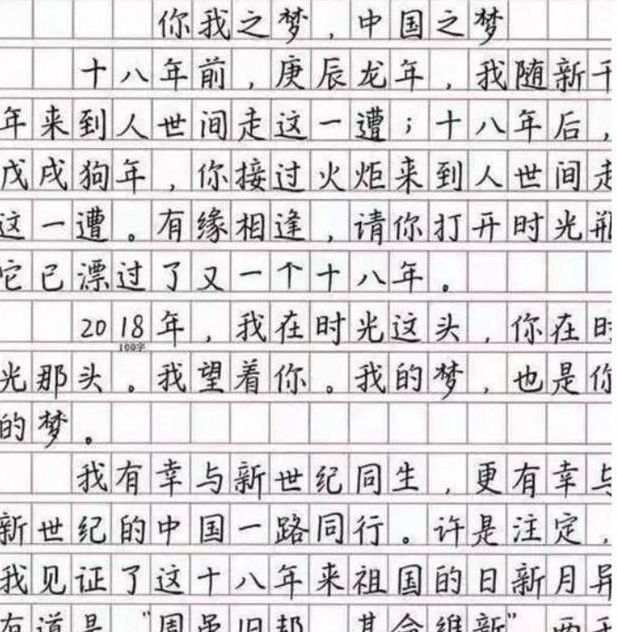 你我之梦，中国之梦
十八年前，庚辰龙年，我随新千
年来到人世间走这一遭；十八年后，
戊戌狗年，你接过火炬来到人世间走
这一遭。有缘相逢，请你打开时光瓶
它已漂过了又一个十八年。
2018年，我在时光这头，你在时
100字
光那头。我望着你。我的梦，也是你
的梦。
我有幸与新世纪同生，更有幸与
新世纪的中国一路同行。许是注定，
我见证了这十八年来祖国的日新月异
有道是“周虽旧邦，其命维新”，而我